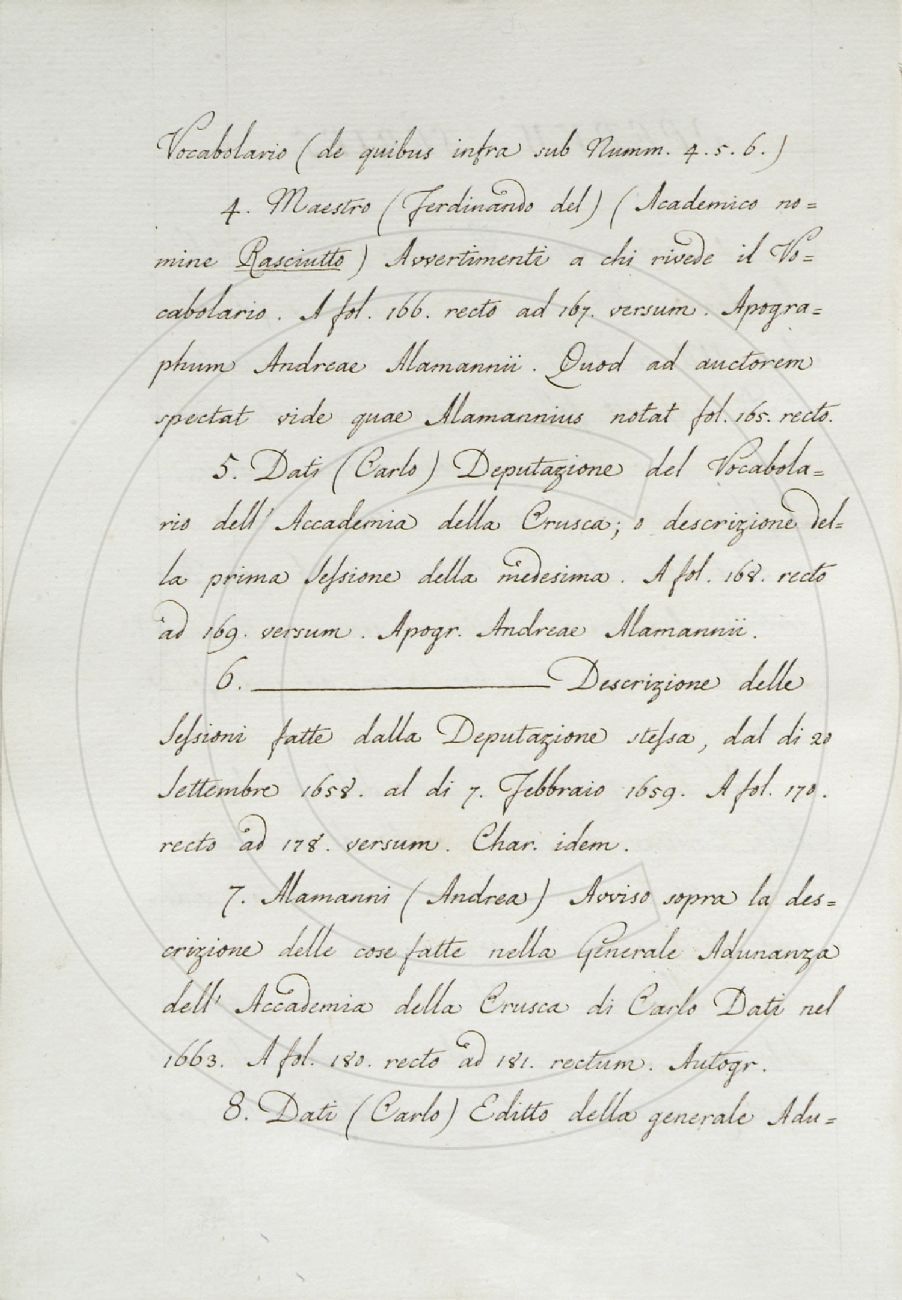 Vocabolario (de quibus infra sub Numm. 4. 5. 6.)
4. Maestro (Ferdinando del) (Academico no=
mine Rasciutto) Avvertimenti a chi rivede il Vo=
cabolario. A fol. 166. recto ad 167. versum. Apogra=
phum Andreae Alamannii. Quod ad auctorem
spectat vide quae Alamannius notat fol. 165. recto.
5. Dati (Carlo) Deputazione del Vocabola=
rio dell' Accademia della Crusca; o descrizione del=
la prima Sessione della medesima. A fol. 168. recto
ad 169. versum. Apogr. Andreae Alamannii.
6. ــــــ Descrizione delle
Sessioni fatte dalla Deputazione stessa, dal di 20
Settembre 1658. al di 7. Febbraio 1659. A fol. 170.
recto ad 178. versum. Char. idem.
7. Alamanni (Andrea) Avviso sopra la des=
crizione delle cose fatte nella Generale Adunanza
dell' Accademia della Crusca di Carlo Dati nel
1663. A fol. 180. recto ad 181. rectum. Autogr.
8. Dati (Carlo) Editto della generale Adu=